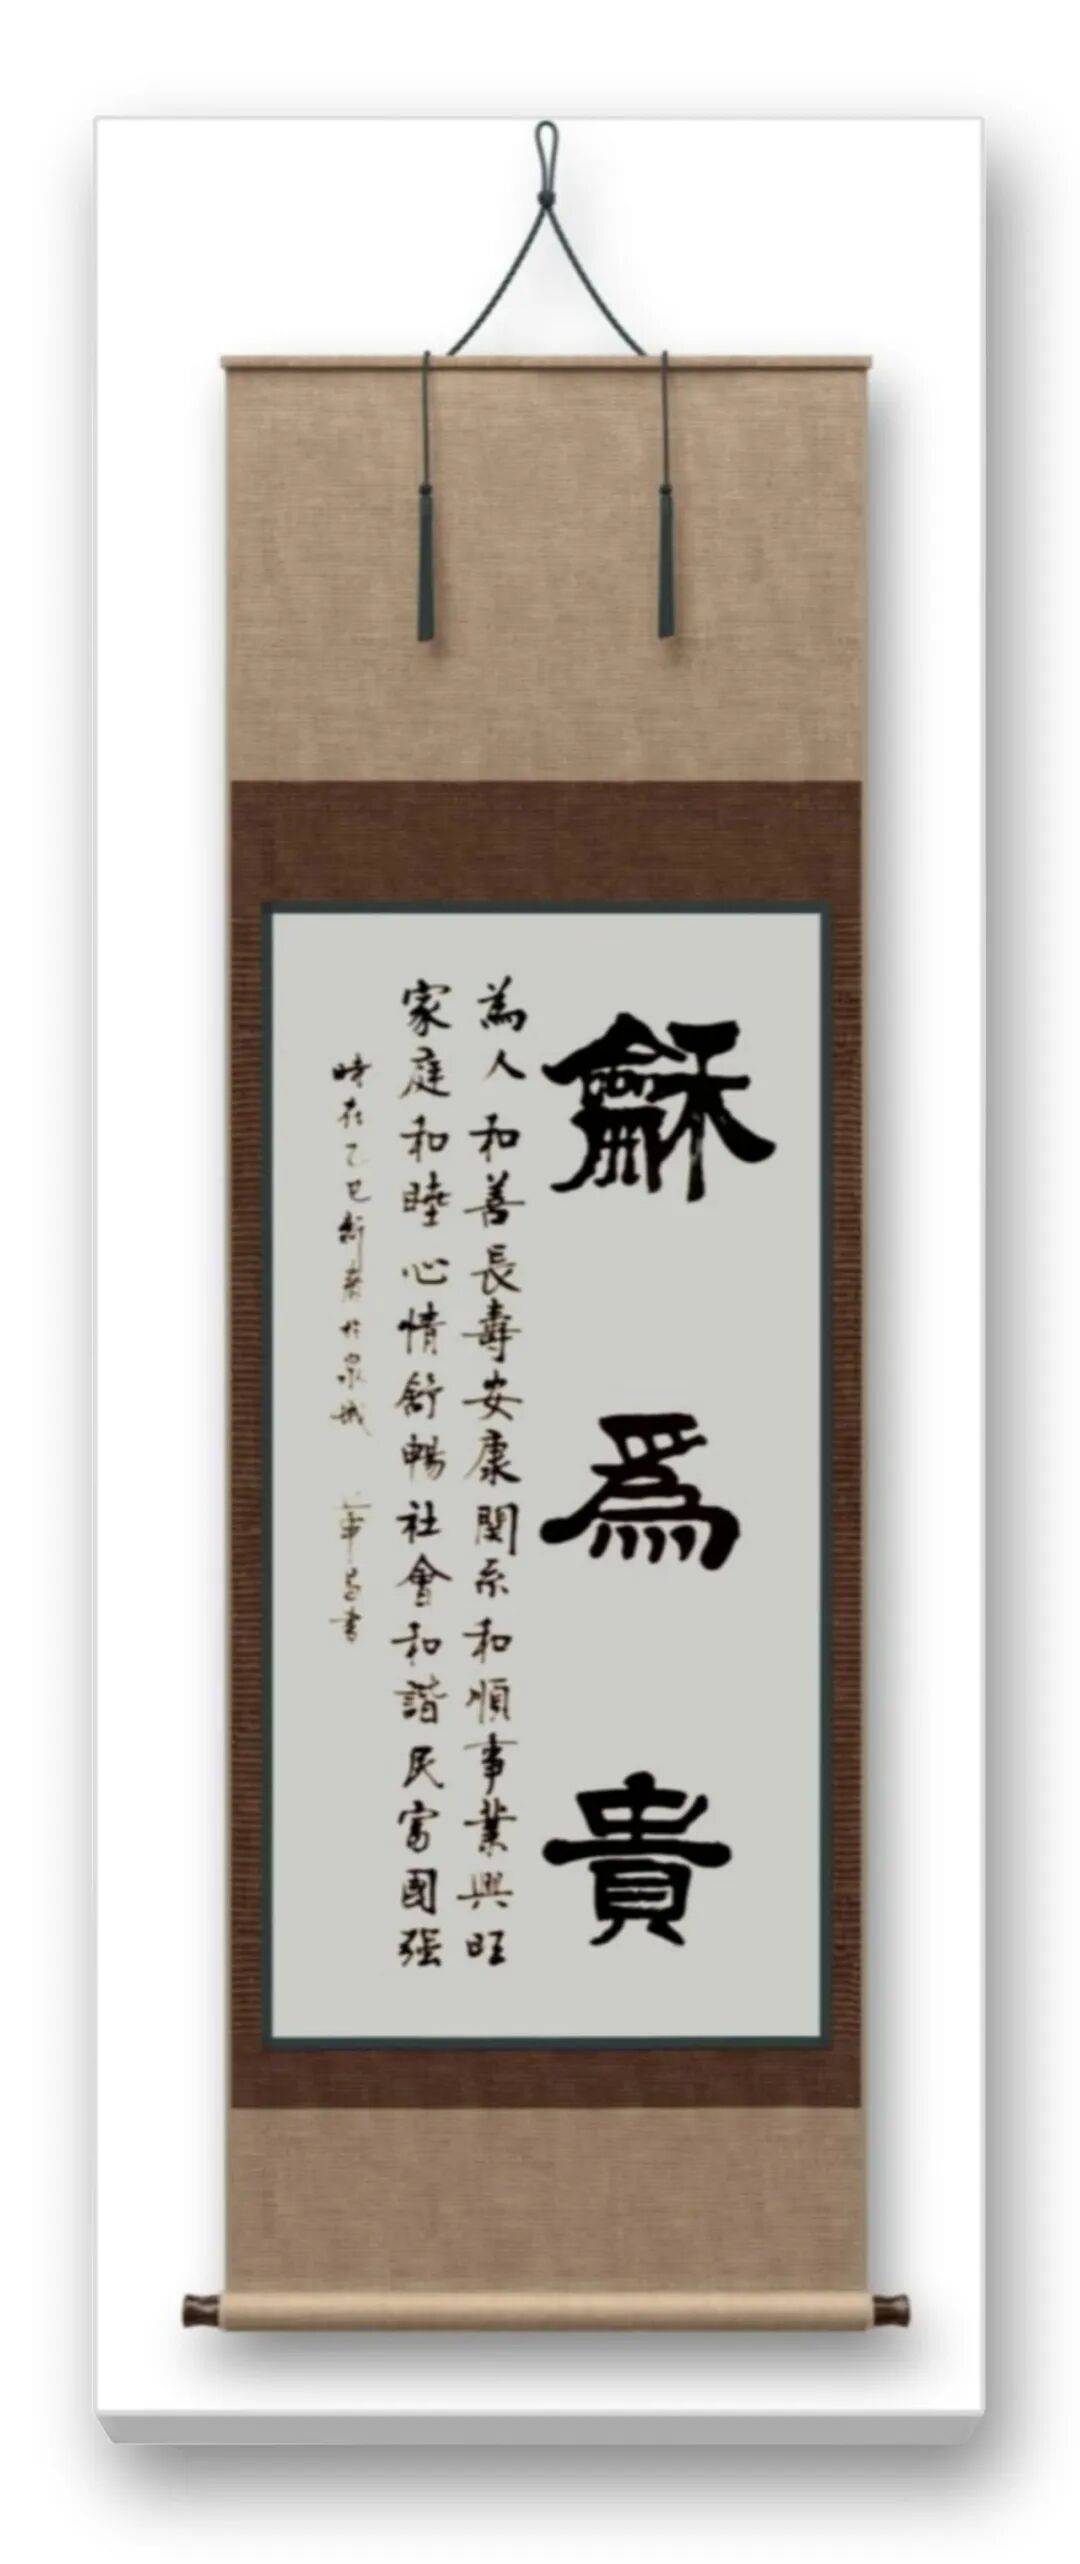 龢爲貴
為人和善長壽安康関系和順事業興旺
家庭和睦心情舒暢社會和諧民富國强
時在乙巳新春於泉城 華昌書